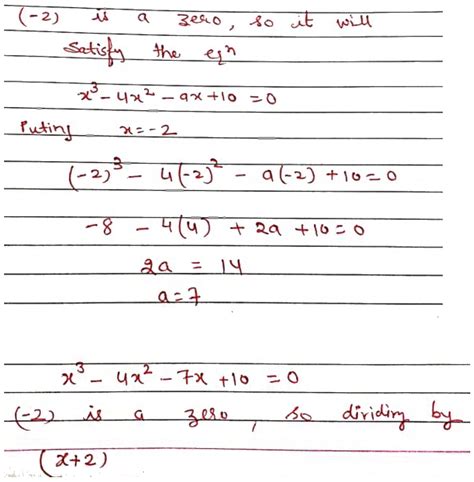 (-2) is a zero, so it will
satisfy the eqn
x³ - 4x² - ax + 10 = 0
Puting x = -2
(-2)³ - 4(-2)² - a(-2) + 10 = 0
-8 - 4(4) + 2a + 10 = 0
2a = 14
a = 7
x³ - 4x² - 7x + 10 = 0
(-2) is a zero, so dividing by
(x+2)